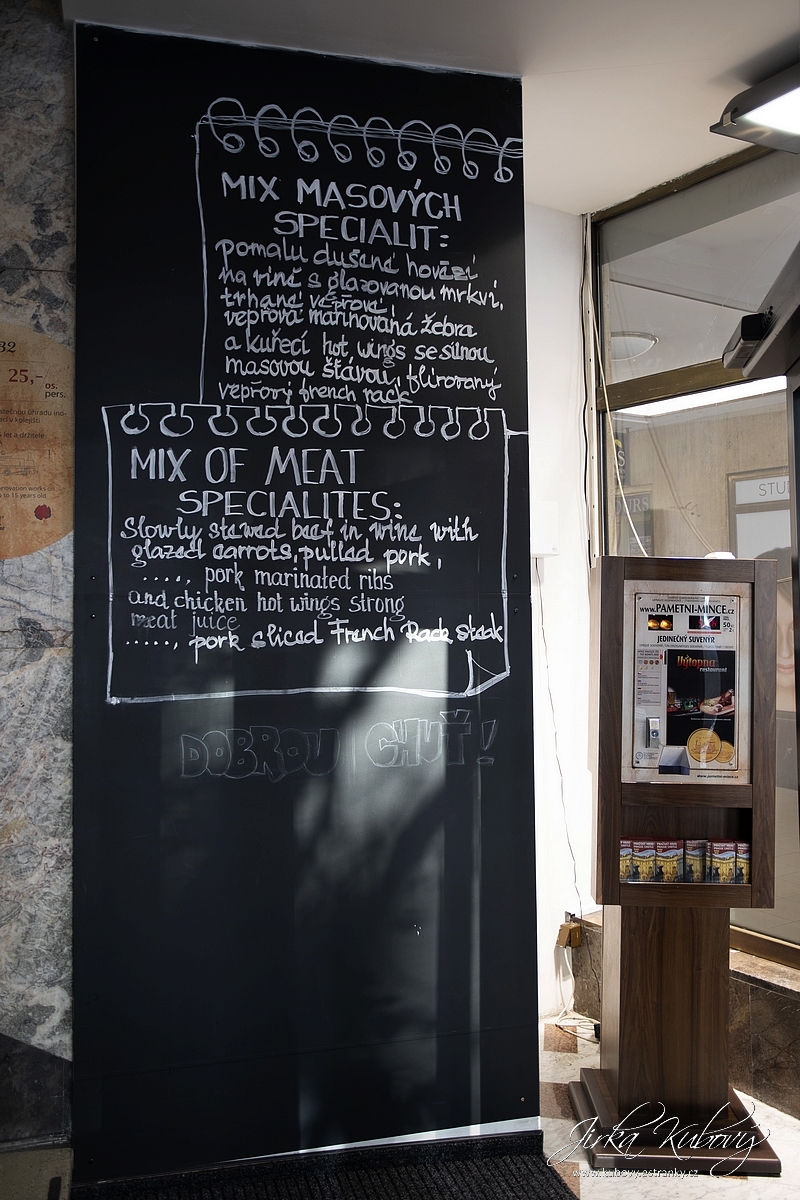 MIX MASOVÝCH
SPECIALIT:
pomalu dušené hovězí
na víně s glazovanou mrkví,
trhané vepřové,
vepřová marinovaná žebra
a kuřecí hot wings se silnou
masovou šťávou, flírovaný
vepřový french rack
MIX OF MEAT
SPECIALITES:
Slowly stewed beef in wine with
glazed carrots, pulled pork,
....., pork marinated ribs
and chicken hot wings strong
meat juice
....., pork sliced French Rack Steak
DOBROU CHUŤ!
32
25,-
os.
pers.
www.PAMETNI-MINCE.cz
JEDINEČNÝ SUVENÝR
Výtopna
restaurant
www.pametni-mince.cz
STU
Jirka Kubový
www.kubovy.estranky.cz